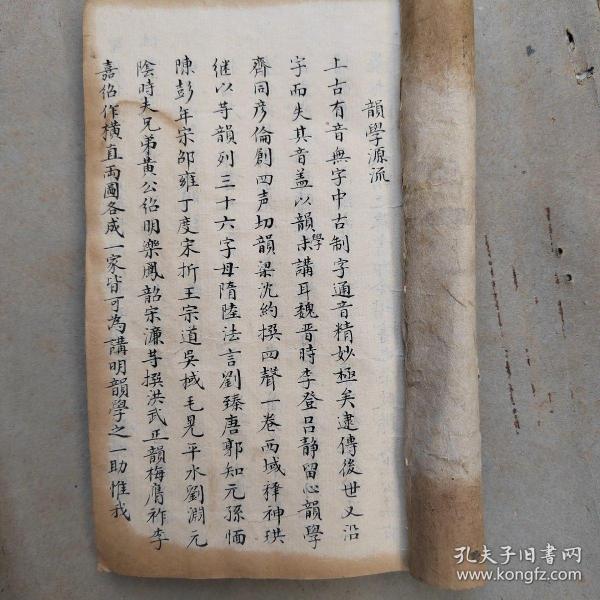 韻學源流
上古有音無字中古制字通音精妙極矣逮傳後世又沿
字而失其音盖以韻學未講耳魏晉時李登呂靜留心韻學
齊同彥倫創四声切韻梁沈約撰四聲一卷西域釋神珙
继以等韻列三十六字母隋陸法言劉臻唐郭知元孫愐
陳彭年宋邵雍丁度宋祈王宗道吳棫毛晃平水劉淵元
陰時夫兄弟黃公紹明樂鳳韶宋濂等撰洪武正韻梅膺祚李
嘉佋作橫直两圖各成一家皆可為講明韻學之一助惟我
孔夫子旧书网
www.kongfz.com